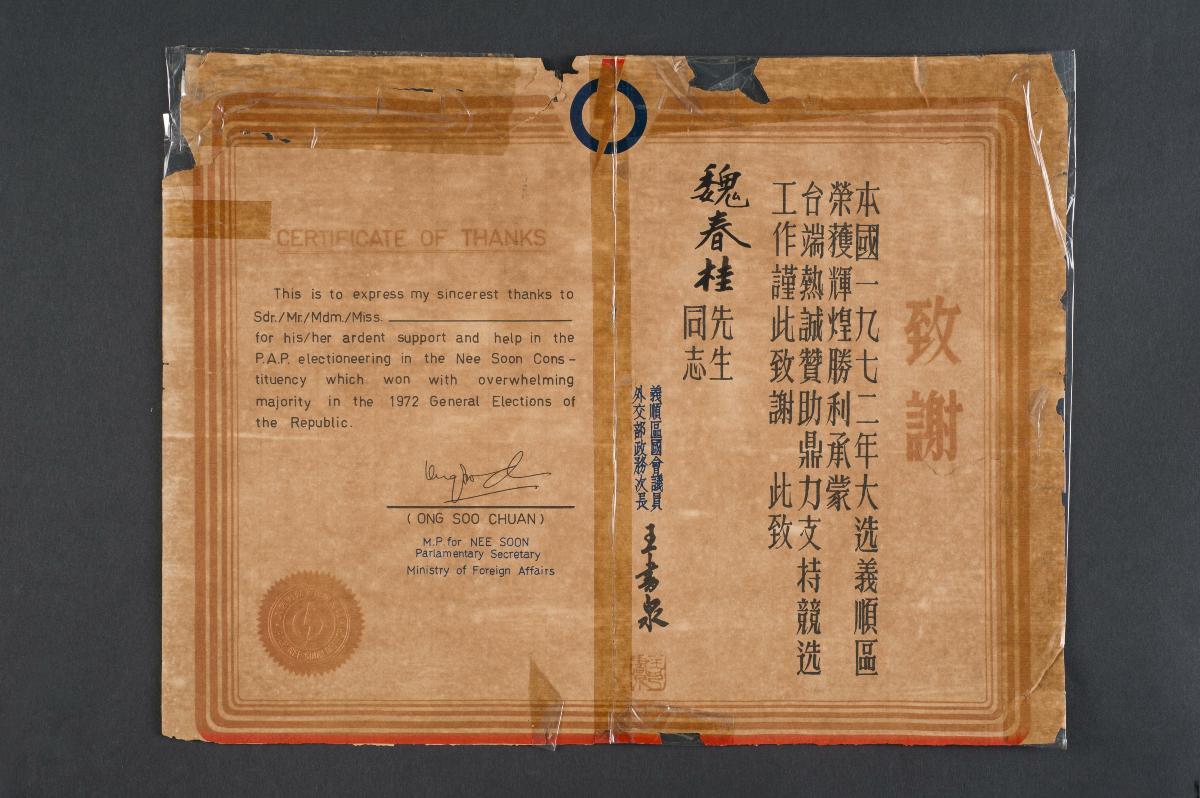 CERTIFICATE OF THANKS
This is to express my sincerest thanks to
Sdr./Mr./Mdm./Miss.
for his/her ardent support and help in the
P.A.P. electioneering in the Nee Soon Cons-
tituency which won with overwhelming
majority in the 1972 General Elections of
the Republic.
(ONG SOO CHUAN)
M.P. for NEE SOON
Parlamentary Secretary
Ministry of Foreign Affairs
致謝
本國一九七二年大选義順區
荣獲輝煌勝利承蒙
台端熱誠贊助鼎力支持競选
工作謹此致謝 此致
魏春桂
先生
同志
義順區國會議員
外交部政務次長
王書泉